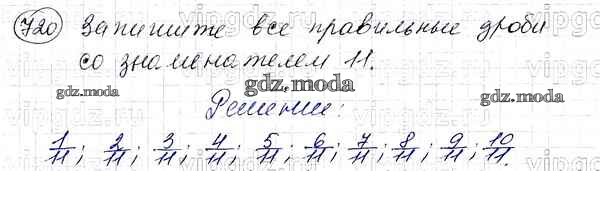 720 Запишите все правильные дроби
со знаменателем 11.
gdz.moda
gdz.moda gdz.moda
Решение:
1/11; 2/11; 3/11; 4/11; 5/11; 6/11; 7/11; 8/11; 9/11; 10/11.